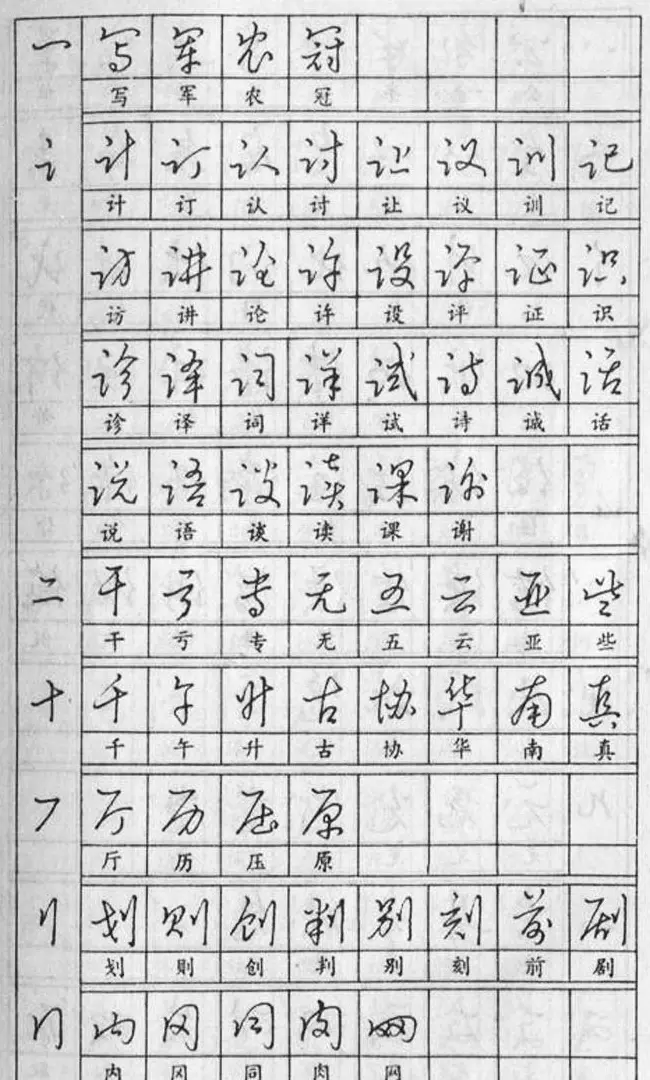 冖 写 军 农 冠
写 军 农 冠
讠 计 订 认 讨 让 议 训 记
计 订 认 讨 让 议 训 记
访 讲 论 许 设 评 证 识
访 讲 论 许 设 评 证 识
诊 译 词 详 试 诗 诚 话
诊 译 词 详 试 诗 诚 话
说 语 谈 读 课 谢
说 语 谈 读 课 谢
二 干 亏 专 无 五 云 亚 些
干 亏 专 无 五 云 亚 些
十 千 午 升 古 协 华 南 真
千 午 升 古 协 华 南 真
厂 厅 历 压 原
厅 历 压 原
刂 划 则 创 判 别 刻 前 剧
划 则 创 判 别 刻 前 剧
冂 内 冈 同 肉 网
内 冈 同 肉 网